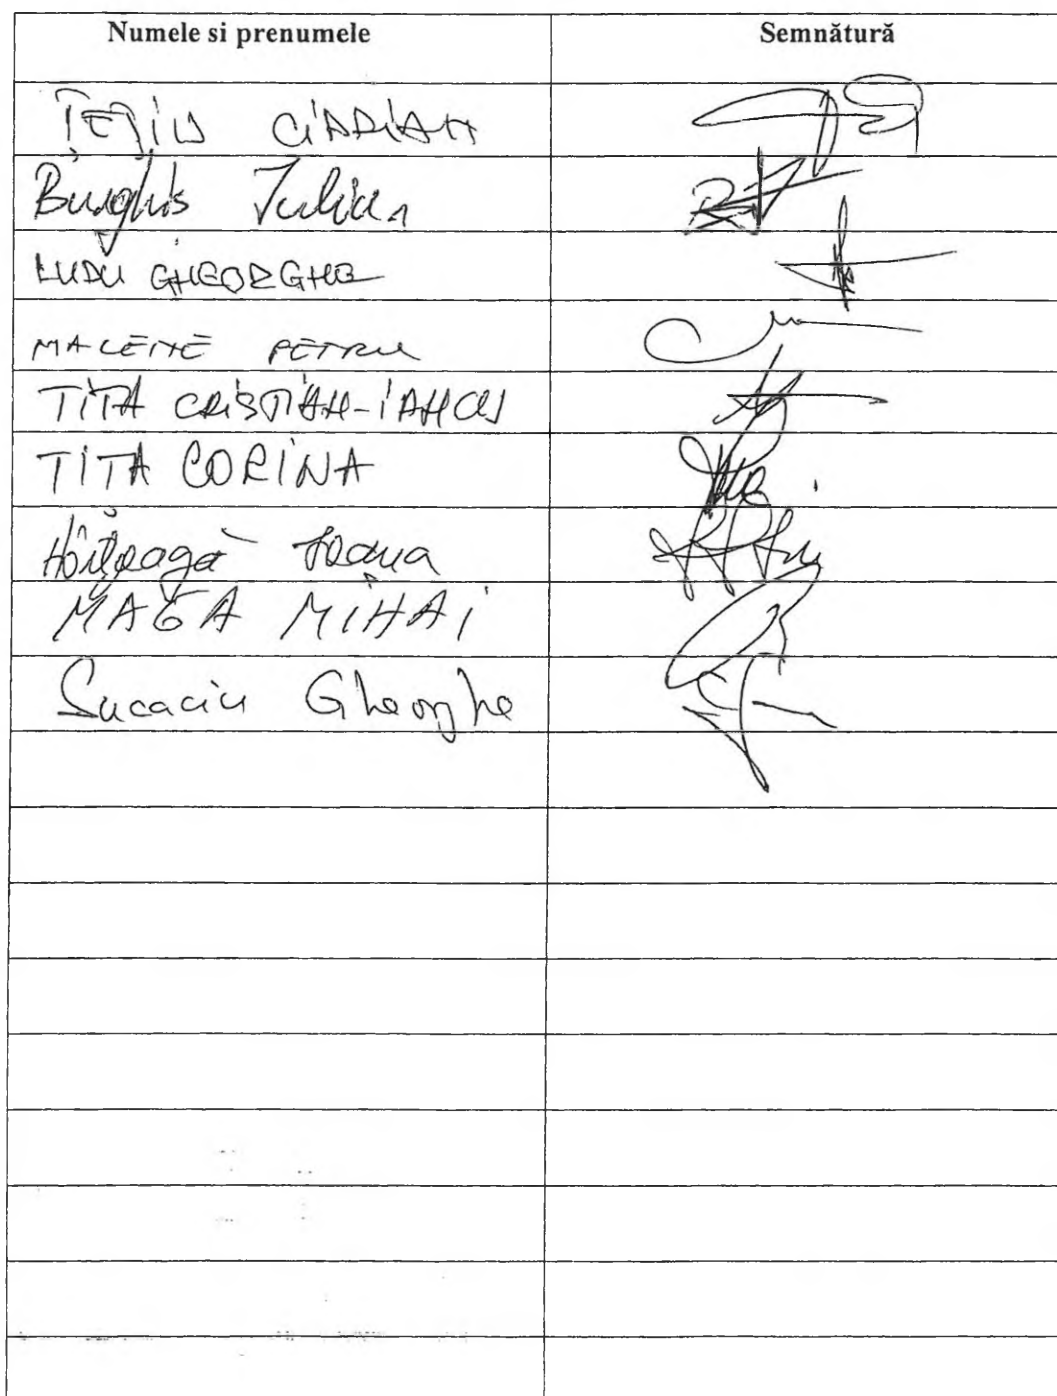 Numele si prenumele Semnătură
CIPRIAN
Burghis Iulian
LUDU GHEORGHE
MALENE PETRU
TITA CRISTIAN-IANCU
TITA CORINA
Ioana
MAGA MIHAI
Sucaciu Gheorghe